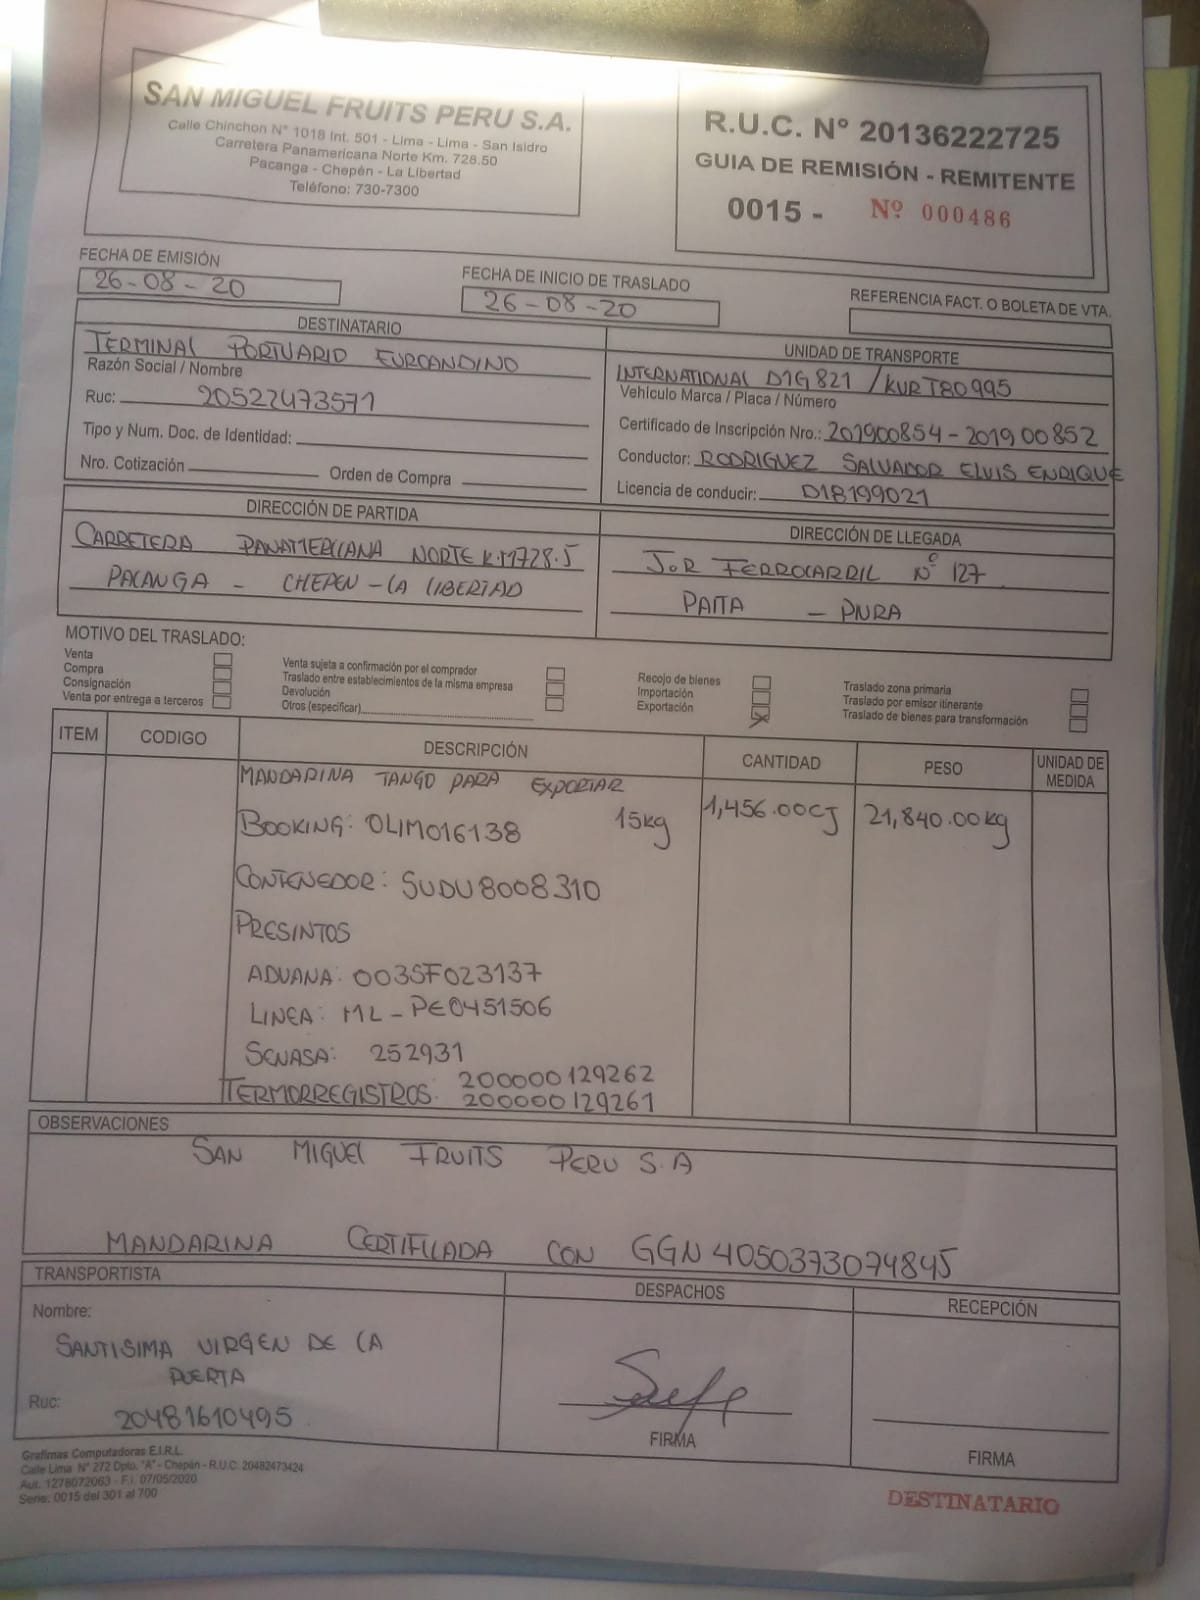 SAN MIGUEL FRUITS PERU S.A.
Calle Chinchon N° 1018 Int. 501 - Lima - Lima - San Isidro
Carretera Panamericana Norte Km. 728.50
Pacanga - Chepén - La Libertad
Teléfono: 730-7300
R.U.C. N° 20136222725
GUIA DE REMISIÓN - REMITENTE
0015 - Nº 000486
FECHA DE EMISIÓN
26-08-20
FECHA DE INICIO DE TRASLADO
26-08-20
REFERENCIA FACT. O BOLETA DE VTA.
DESTINATARIO
TERMINAL PORTUARIO EUROANDINO
Razón Social / Nombre
Ruc: 20522473571
Tipo y Num. Doc. de Identidad:
Nro. Cotización Orden de Compra
UNIDAD DE TRANSPORTE
INTERNATIONAL D1G821 /KURT80995
Vehículo Marca / Placa / Número
Certificado de Inscripción Nro.: 201900854-201900852
Conductor: RODRIGUEZ SALVADOR ELVIS ENRIQUE
Licencia de conducir: D18199021
DIRECCIÓN DE PARTIDA
CARRETERA PANAMERICANA NORTE K.M728.5
PACANGA - CHEPEN - LA LIBERTAD
DIRECCIÓN DE LLEGADA
J.R FERROCARRIL N° 127
PAITA - PIURA
MOTIVO DEL TRASLADO:
Venta
Compra
Consignación
Venta por entrega a terceros
Venta sujeta a confirmación por el comprador
Traslado entre establecimientos de la misma empresa
Devolución
Otros (especificar)
Recojo de bienes
Importación
Exportación X
Traslado zona primaria
Traslado por emisor itinerante
Traslado de bienes para transformación
ITEM CODIGO DESCRIPCIÓN CANTIDAD PESO UNIDAD DE MEDIDA
MANDARINA TANGO PARA EXPORTAR
BOOKING: OLIM016138 15kg 1,456.00CJ 21,840.00kg
CONTENEDOR: SUDU8008310
PRESINTOS
ADUANA: 003SF023137
LINEA: ML-PE0451506
SENASA: 252931
TERMORREGISTROS: 200000129262
200000129261
OBSERVACIONES
SAN MIGUEL FRUITS PERU S.A
MANDARINA CERTIFICADA CON GGN 4050373074845
TRANSPORTISTA
Nombre:
SANTISIMA VIRGEN DE LA
PUERTA
Ruc:
20481610495
DESPACHOS
FIRMA
RECEPCIÓN
FIRMA
Grafimas Computadoras E.I.R.L.
Calle Lima N° 272 Dpto. "A" - Chepén - R.U.C. 20482473424
Aut. 1278072063 - F.I. 07/05/2020
Serie: 0015 del 301 al 700
DESTINATARIO